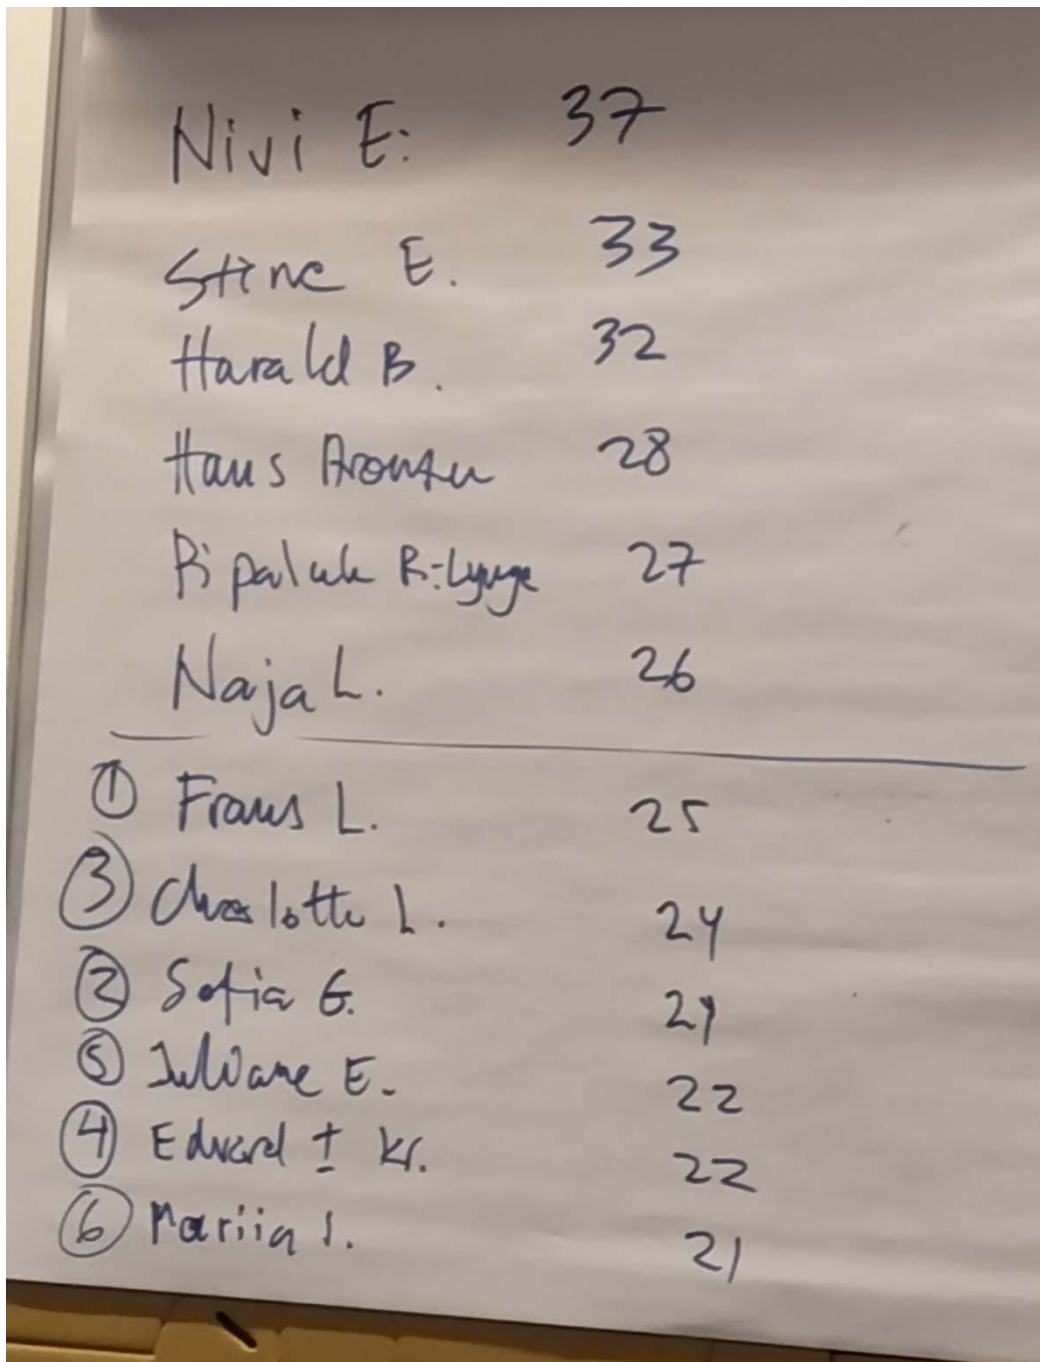 Nivi E. 37
Stine E. 33
Harald B. 32
Hans Aronsen 28
Pipaluk R-Lynge 27
Naja L. 26
① Frans L. 25
③ Charlotte L. 24
② Sofia G. 24
⑤ Juliane E. 22
④ Edvard ± Kr. 22
⑥ Mariia S. 21